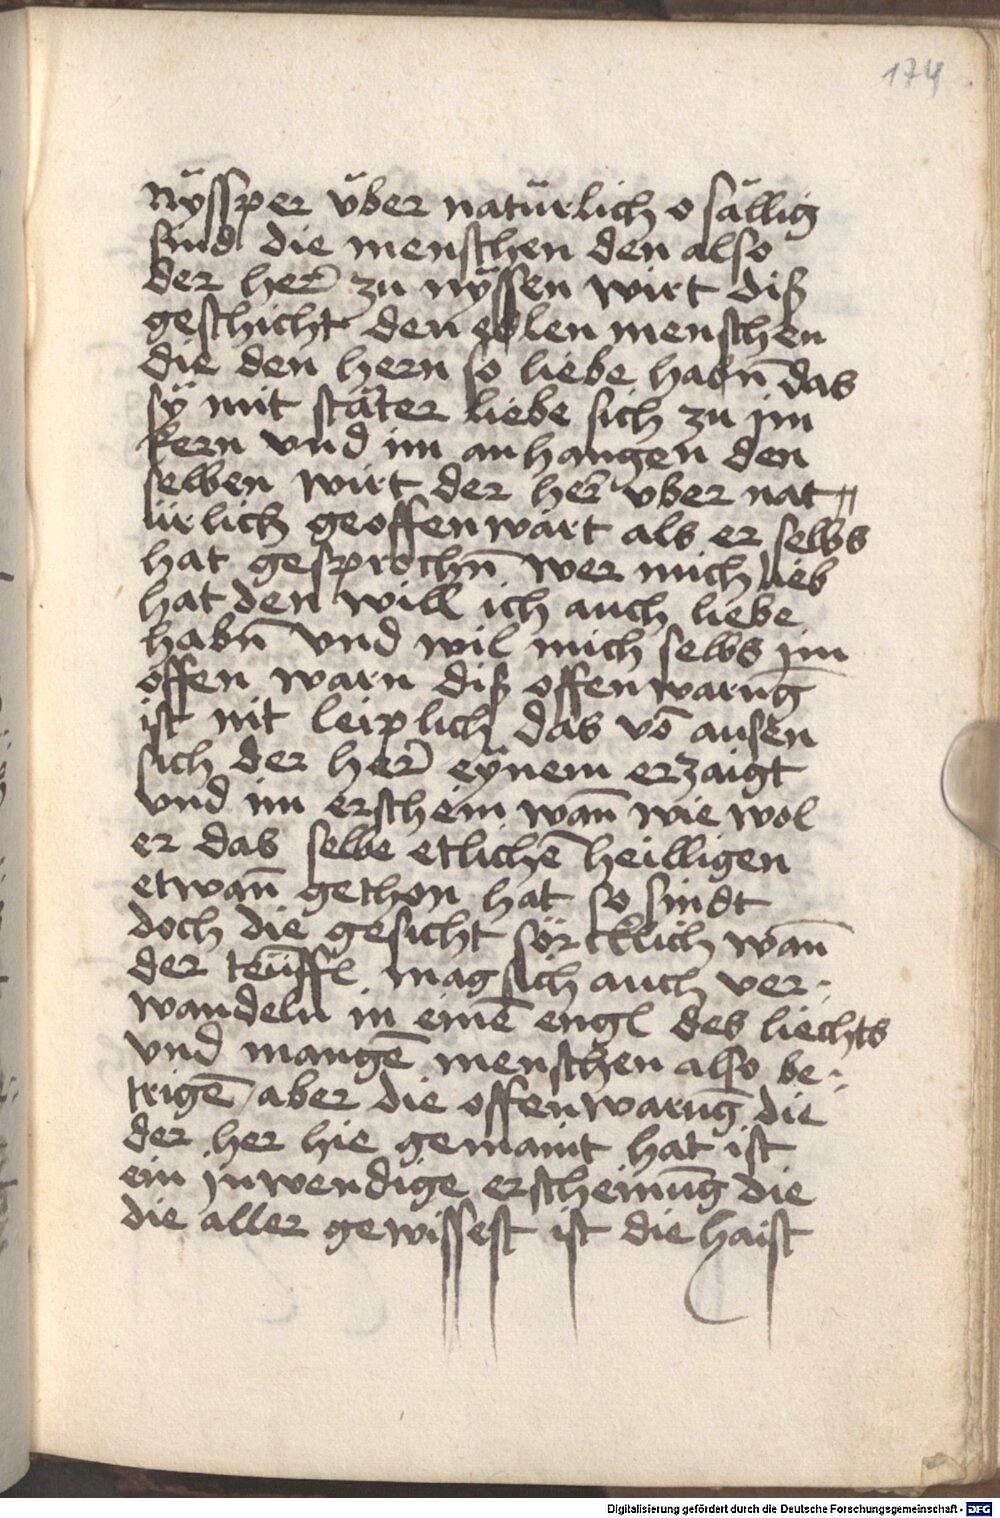 174
nÿssper v̈ber natürlich o sällig
sind die menschen den also
der her̄ zu nÿssen wirt diß
geschicht den edlen menschen
die den hern so liebe habn̄ das
sÿ mit stäter liebe sich zu jm
kern vnd im anhangen den
selben wirt der her̄ vber nat〃
ürlich geoffenwart als er selbs
hat gesprochn̄ wer mich lieb
hat den will ich auch liebe
habn̄ vnd wil mich selbs jm
offen warn diß offenwarūg
ist nit leiplich das vō ausen
sich der her̄ eÿnem erzaigt
vnd im erschein wan̄ wie wol
er das selbe etlichē heilligen
etwan̄ gethon hat so sindt
doch die gesicht sörcklich wan̄
der teüffl mag sich auch ver:
wandeln in einē engl des liechts
vnd mangē menschen also be:
trigē / aber die offenwarūg die
der her hie gemaint hat ist
ein jnwendige erscheinūg die
die aller gewissest ist die haist
Digitalisierung gefördert durch die Deutsche Forschungsgemeinschaft - DFG